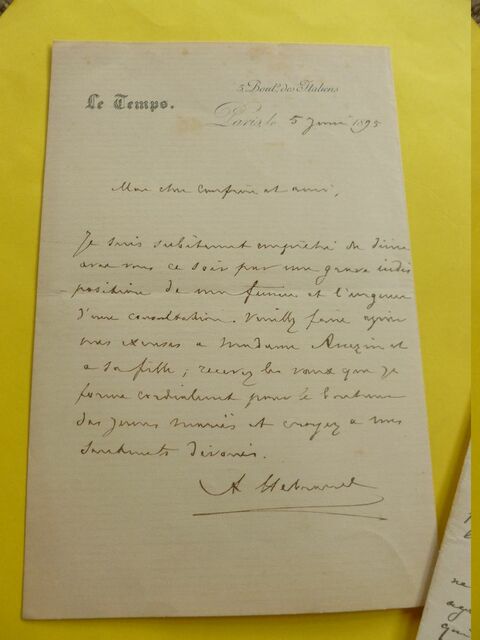 5. Boulᵈ des Italiens
Le Temps.
Paris, le 5 Juin 1895
Mon cher confrère et ami,
Je suis subitement empêché de diner
avec vous ce soir par une grave indis
position de ma femme et l'urgence
d'une consultation. Veuillez faire agréer
mes excuses à Madame et
à sa fille, recevez les vœux que je
forme cordialement pour le bonheur
des jeunes mariés et croyez à mes
sentiments dévoués.
A Hebrard